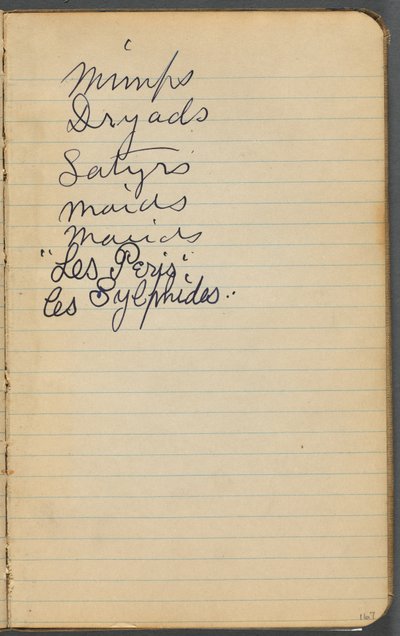 Mimps
Dryads
Satyrs
Maids
"Les Peris"
Les Sylphides..
167